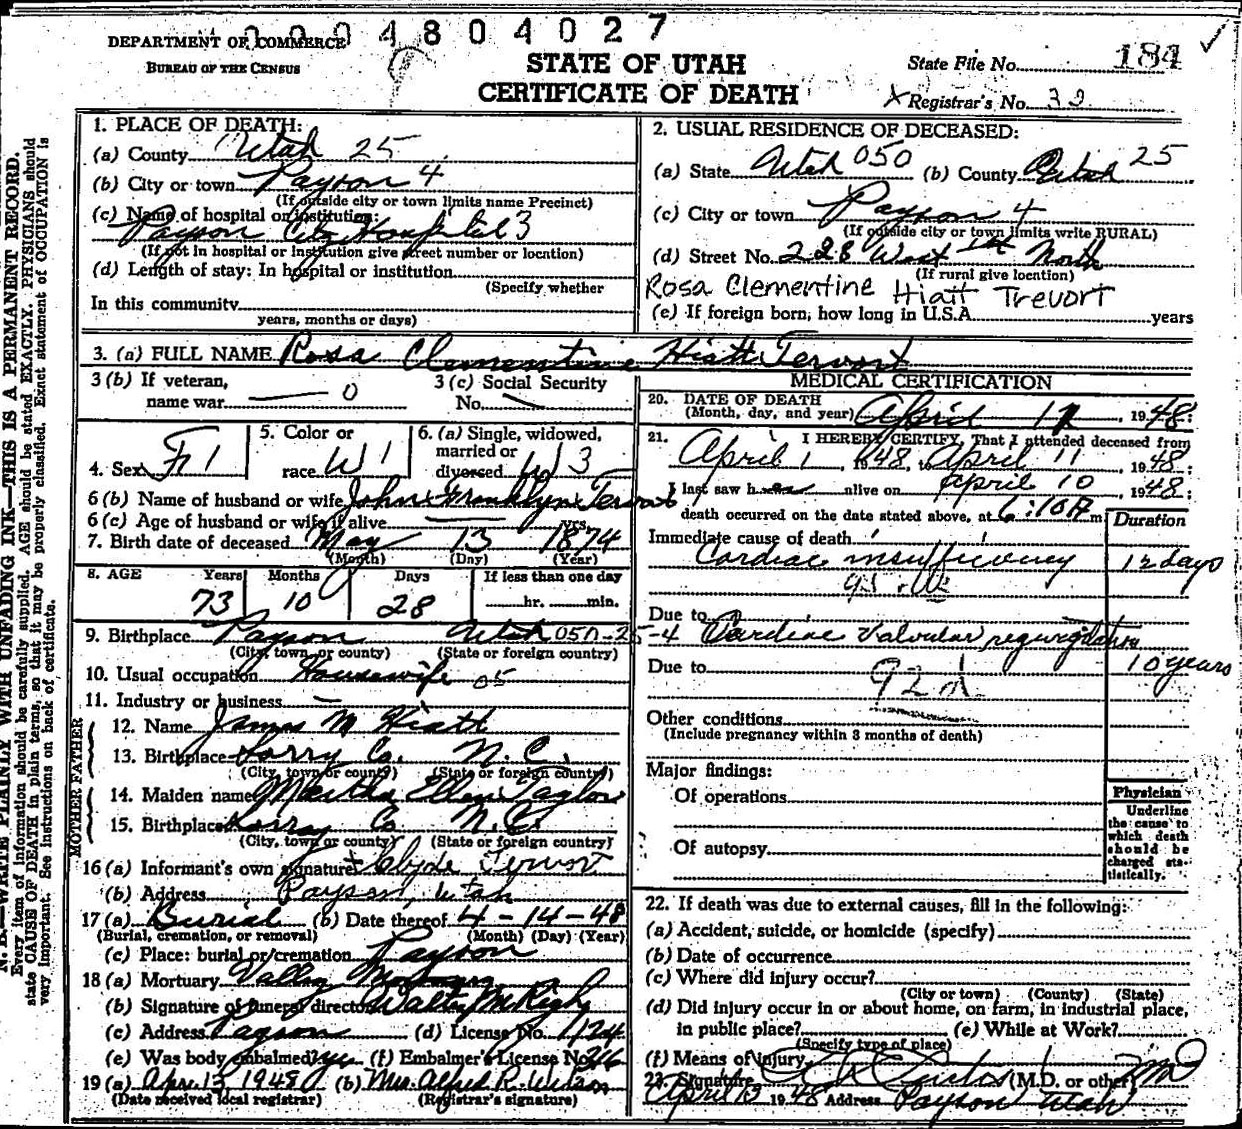 0004804027
DEPARTMENT OF COMMERCE
BUREAU OF THE CENSUS
STATE OF UTAH
CERTIFICATE OF DEATH
State File No. 184
Registrar's No. 32
N. B.—WRITE PLAINLY WITH UNFADING INK—THIS IS A PERMANENT RECORD.
Every item of information should be carefully supplied. AGE should be stated EXACTLY. PHYSICIANS should
state CAUSE OF DEATH in plain terms, so that it may be properly classified. Exact statement of OCCUPATION is
very important. See instructions on back of certificate.
1. PLACE OF DEATH:
(a) County Utah 25
(b) City or town Payson 4
(If outside city or town limits name Precinct)
(c) Name of hospital or institution:
Payson City Hospital 3
(If not in hospital or institution give street number or location)
(d) Length of stay: In hospital or institution
(Specify whether
In this community
years, months or days)
2. USUAL RESIDENCE OF DECEASED:
(a) State Utah 050 (b) County Utah 25
(c) City or town Payson 4
(If outside city or town limits write RURAL)
(d) Street No. 228 West 1st North
(If rural give location)
Rosa Clementine Hiatt Trevort
(e) If foreign born, how long in U.S.A. years
3. (a) FULL NAME Rosa Clementine Hiatt Tervort
3 (b) If veteran, name war 0
3 (c) Social Security No.
4. Sex F 1
5. Color or race W 1
6. (a) Single, widowed, married or divorced W 3
6 (b) Name of husband or wife John Franklyn Tervort
6 (c) Age of husband or wife if alive yrs.
7. Birth date of deceased May 13 1874
(Month) (Day) (Year)
8. AGE Years Months Days If less than one day
73 10 28 hr. min.
9. Birthplace Payson Utah 050-25-4
(City, town, or county) (State or foreign country)
10. Usual occupation Housewife 05
11. Industry or business
FATHER
12. Name James M Hiatt
13. Birthplace Sorry Co. N.C.
(City, town or county) (State or foreign country)
MOTHER
14. Maiden name Martha Ellen Taylor
15. Birthplace Co N.C.
(City, town or county) (State or foreign country)
16 (a) Informant's own signature Clyde Tervort
(b) Address Payson, Utah
17 (a) Burial (b) Date thereof 4-14-48
(Burial, cremation, or removal) (Month) (Day) (Year)
(c) Place: burial or cremation Payson
18 (a) Mortuary Valley Mortuary
(b) Signature of funeral director
(c) Address Payson (d) License No. 1124
(e) Was body embalmed? yes (f) Embalmer's License No. 216
19 (a) Apr. 13, 1948 (b) Mrs. Alfred R. Wilson
(Date received local registrar) (Registrar's signature)
MEDICAL CERTIFICATION
20. DATE OF DEATH
(Month, day, and year) April 11, 1948:
21. I HEREBY CERTIFY, That I attended deceased from
April 1, 1948, to April 11, 1948;
I last saw her alive on April 10, 1948;
death occurred on the date stated above, at 6:10 A m.
Duration
Immediate cause of death
Cardiac insufficiency 12 days
Due to
Cardiac Valvular regurgitation
10 years
Due to
92 d
Other conditions
(Include pregnancy within 3 months of death)
Major findings:
Of operations
Of autopsy
Physician
Underline
the cause to
which death
should be
charged sta-
tistically.
22. If death was due to external causes, fill in the following:
(a) Accident, suicide, or homicide (specify)
(b) Date of occurrence
(c) Where did injury occur?
(City or town) (County) (State)
(d) Did injury occur in or about home, on farm, in industrial place,
in public place? (e) While at Work?
(Specify type of place)
(f) Means of injury
23. Signature (M.D. or other) MD
April 13 1948 Address Payson Utah